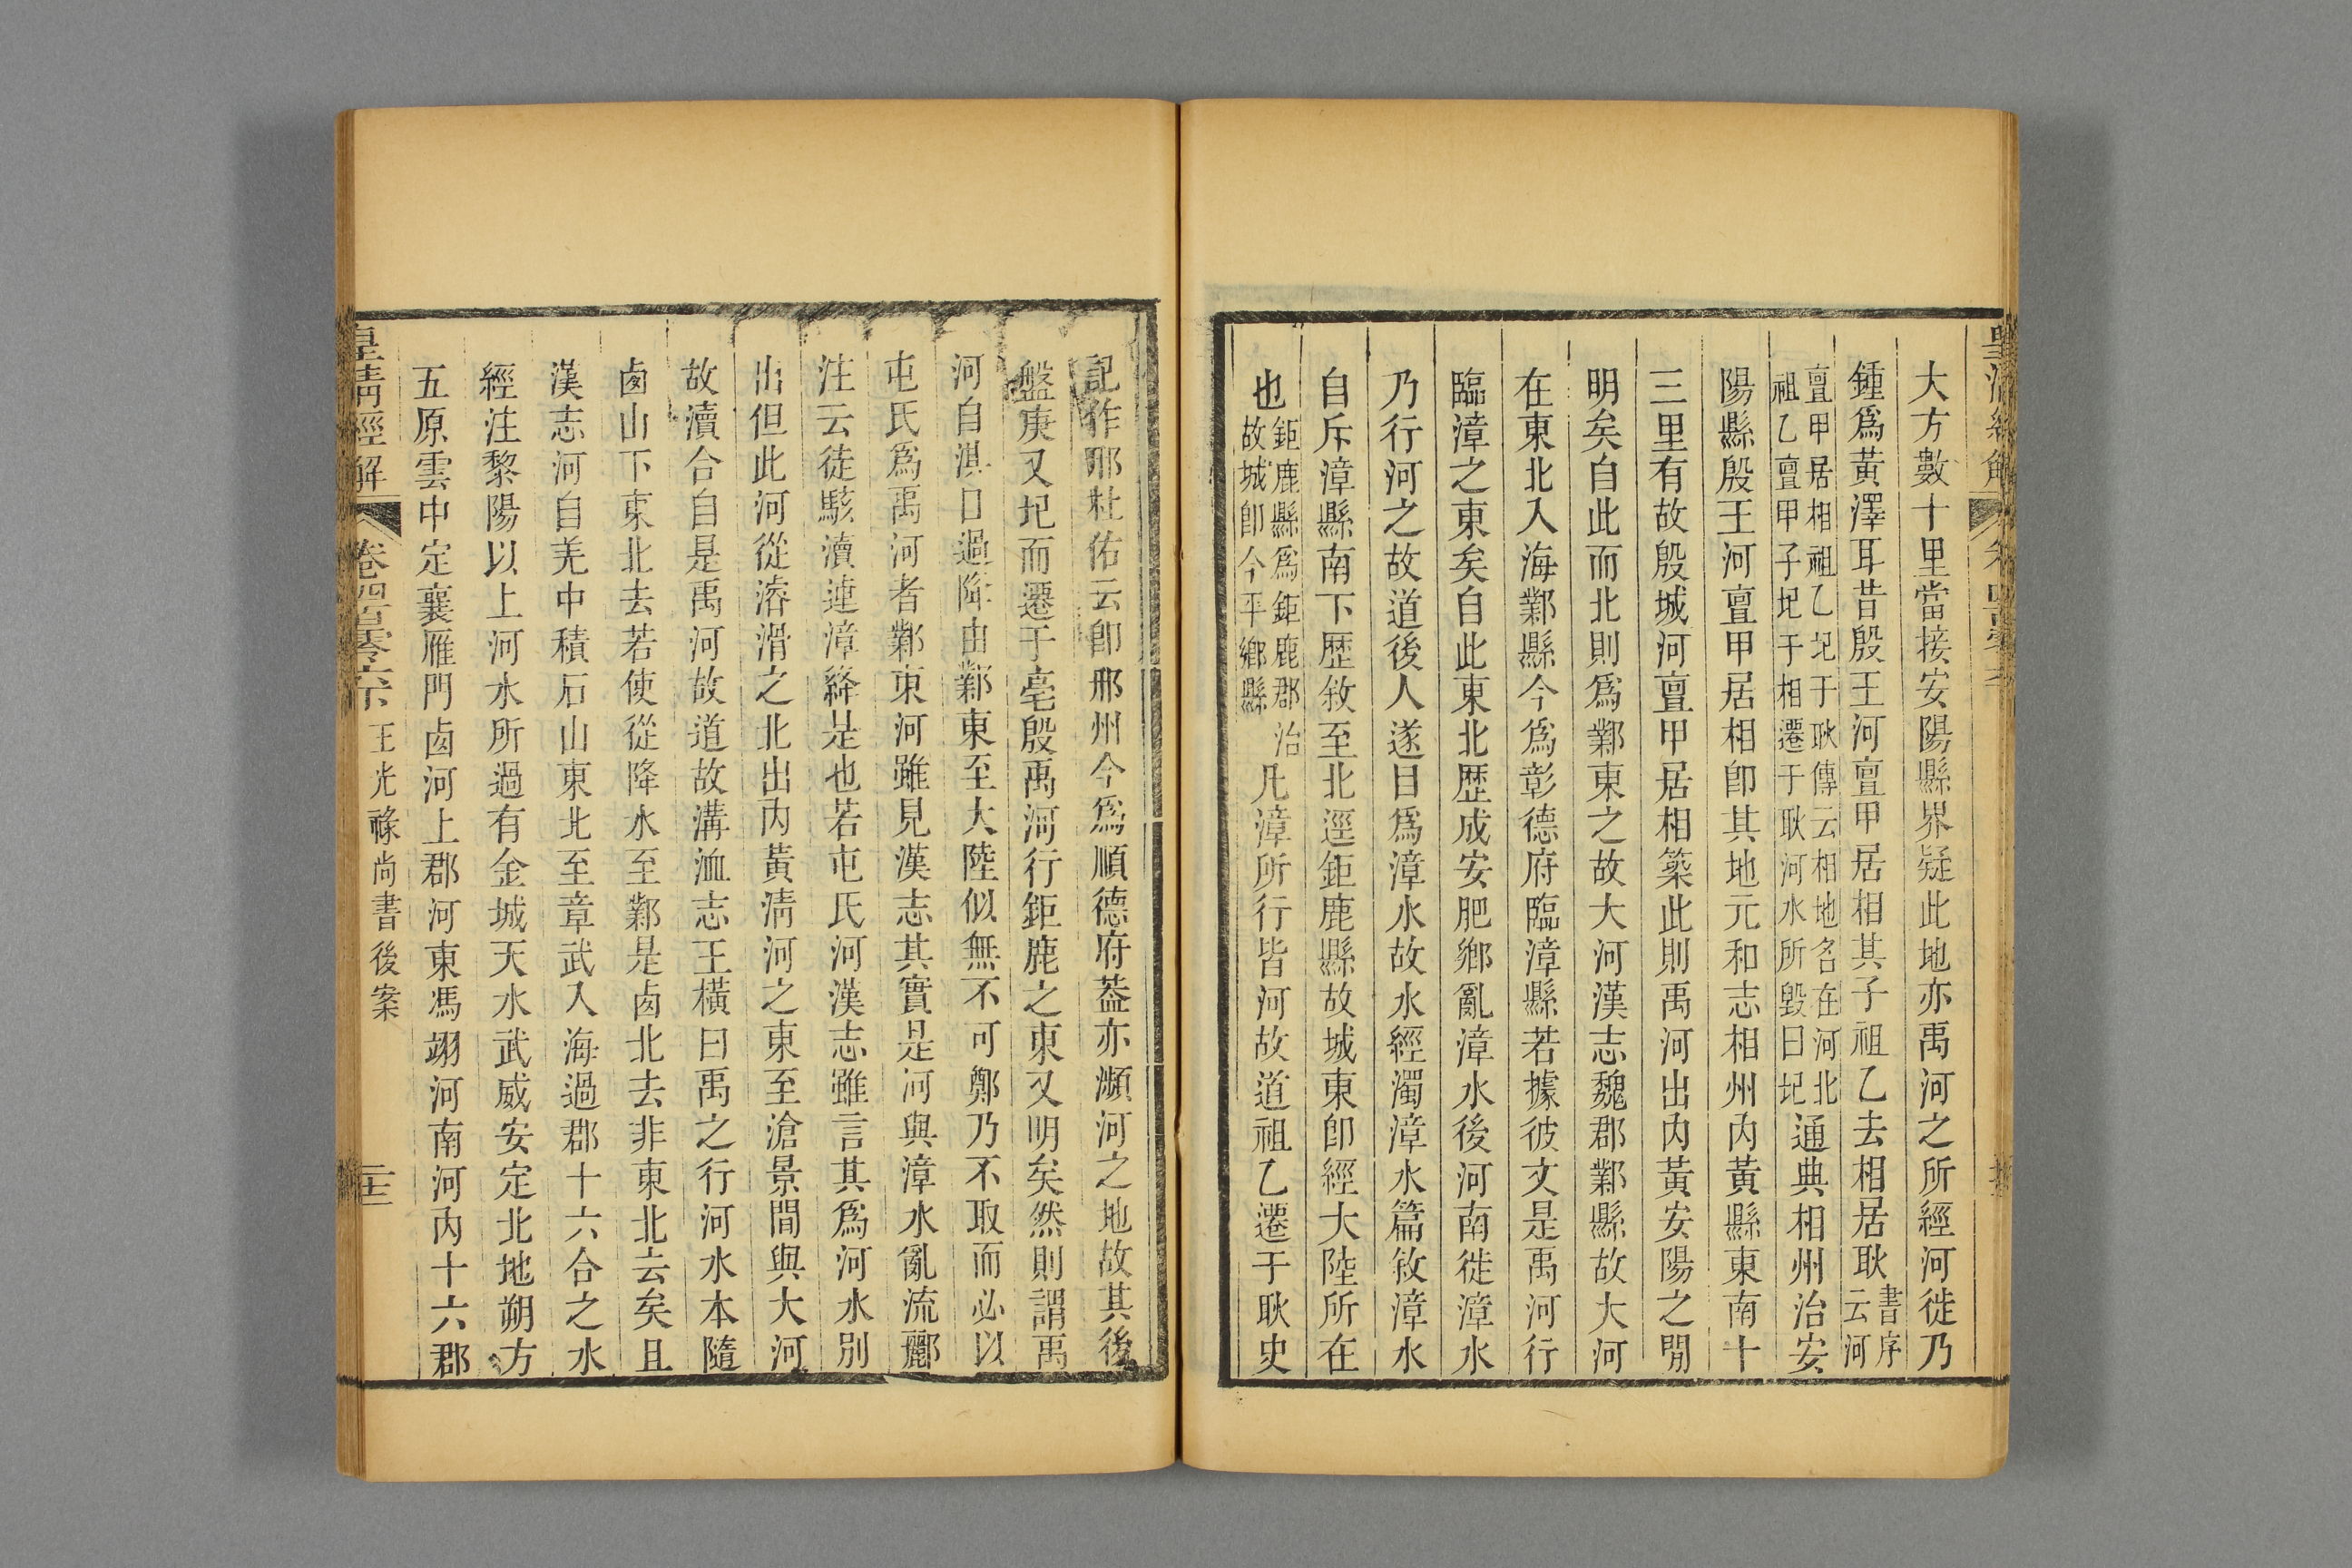 大方數十里當接安陽縣界疑此地亦禹河之所經河徙乃
鍾爲黃澤耳昔殷王河亶甲居相其子祖乙去相居耿書序云河
亶甲居相祖乙圮于耿傳云相地名在河北祖乙亶甲子圮于相遷于耿河水所毀曰圮通典相州治安
陽縣殷王河亶甲居相卽其地元和志相州內黃縣東南十
三里有故殷城河亶甲居相築此則禹河出內黃安陽之閒
明矣自此而北則爲鄴東之故大河漢志魏郡鄴縣故大河
在東北入海鄴縣今爲彰德府臨漳縣若據彼文是禹河行
臨漳之東矣自此東北歷成安肥鄉亂漳水後河南徙漳水
乃行河之故道後人遂目爲漳水故水經濁漳水篇敘漳水
自斥漳縣南下歷敘至北逕鉅鹿縣故城東卽經大陸所在
也鉅鹿縣爲鉅鹿郡治故城卽今平鄉縣凡漳所行皆河故道祖乙遷于耿史
記作邢杜佑云卽邢州今爲順德府葢亦瀕河之地故其後
盤庚又圮而遷于亳殷禹河行鉅鹿之東又明矣然則謂禹
河自淇口過降由鄴東至大陸似無不可鄭乃不取而必以
屯氏爲禹河者鄴東河雖見漢志其實是河與漳水亂流酈
注云徒駭瀆連漳絳是也若屯氏河漢志雖言其爲河水別
出但此河從濬滑之北出內黃淸河之東至滄景間與大河
故瀆合自是禹河故道故溝洫志王橫曰禹之行河水本隨
鹵山下東北去若使從降水至鄴是鹵北去非東北云矣且
漢志河自羌中積石山東北至章武入海過郡十六合之水
經注黎陽以上河水所過有金城天水武威安定北地朔方
五原雲中定襄雁門鹵河上郡河東馮翊河南河內十六郡
皇淸經解 卷四百零六下 王光祿尚書後案 二十三